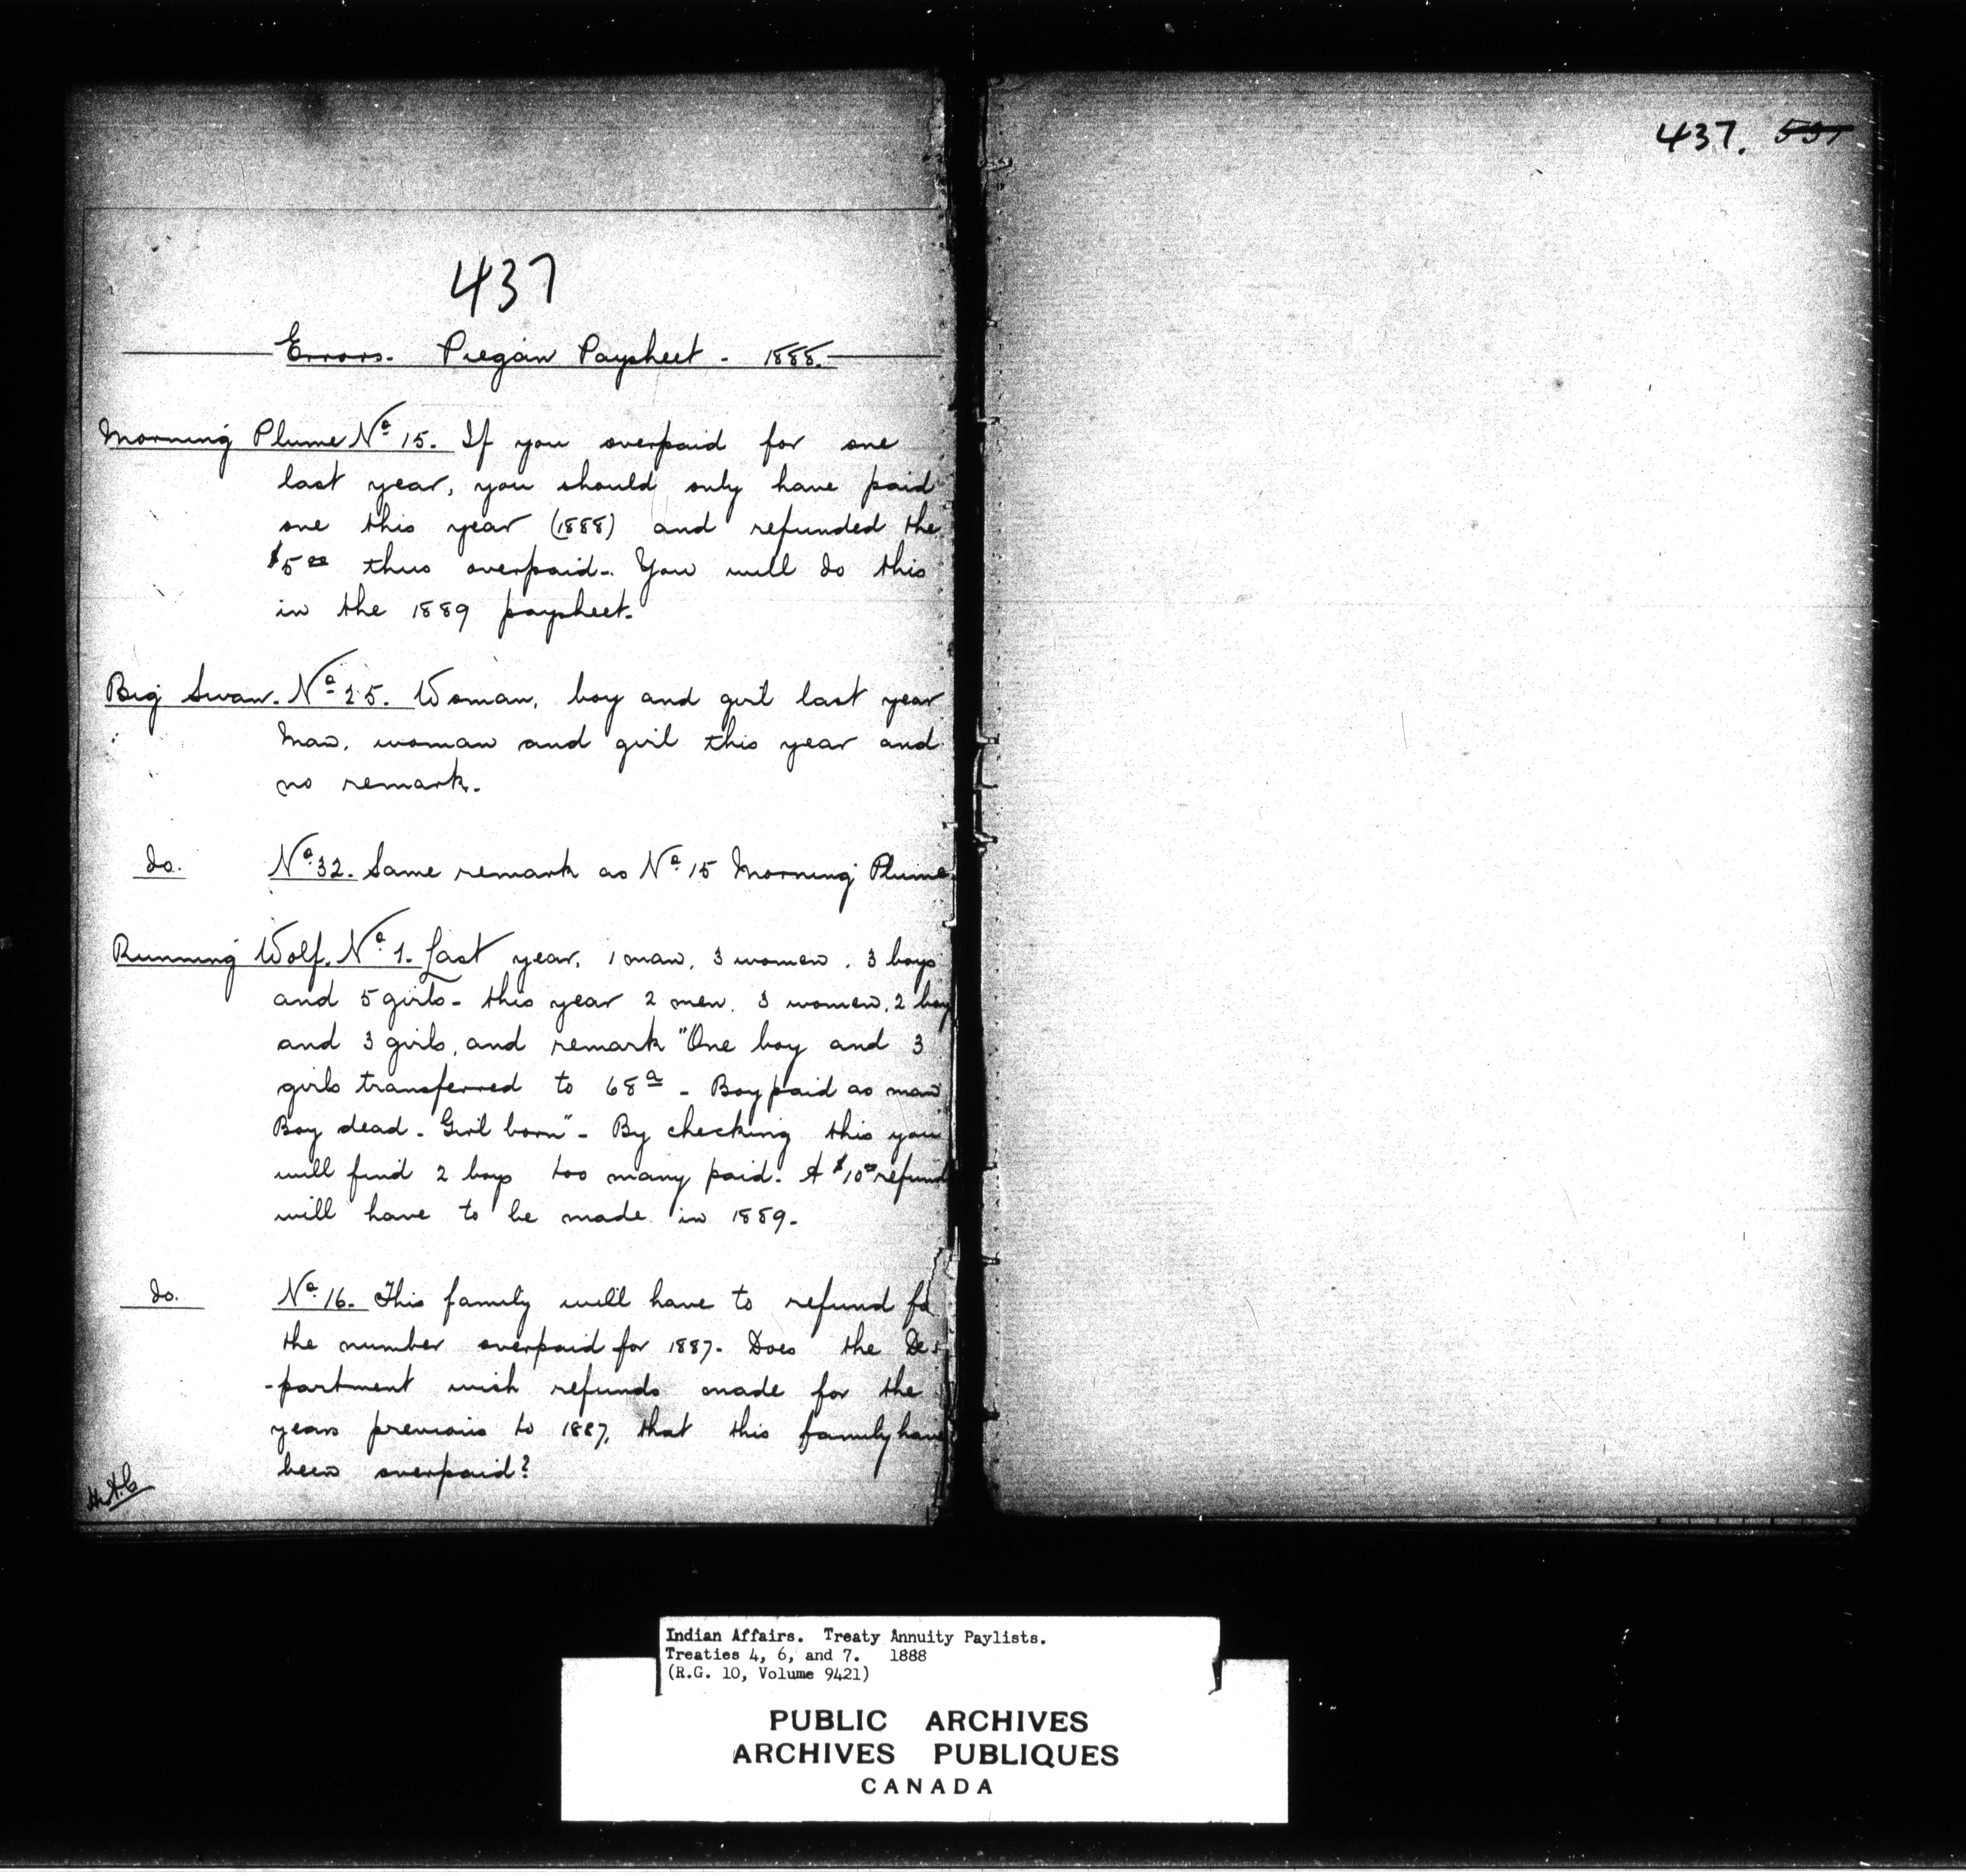 437
Errors. Piegan Paysheet - 1888.
Morning Plume No 15. If you overpaid for one
last year, you should only have paid
one this year (1888) and refunded the
$5 00 thus overpaid. You will do this
in the 1889 paysheet.
Big Swan. No 25. Woman, boy and girl last year
Man, woman and girl this year and
no remark.
do. No 32. Same remark as No 15 Morning Plume
Running Wolf. No 1. Last year, 1 man, 3 women, 3 boys
and 5 girls - this year 2 men, 3 women, 2 boy
and 3 girls, and remark "One boy and 3
girls transferred to 68a - Boy paid as man
Boy dead - Girl born" - By checking this you
will find 2 boys too many paid. A $10 00 refund
will have to be made in 1889.
do. No 16. This family will have to refund fo
the number overpaid for 1887. Does the De-
-partment wish refunds made for the
years previous to 1887, that this family have
been overpaid?
437.
Indian Affairs. Treaty Annuity Paylists.
Treaties 4, 6, and 7. 1888
(R.G. 10, Volume 9421)
PUBLIC ARCHIVES
ARCHIVES PUBLIQUES
CANADA